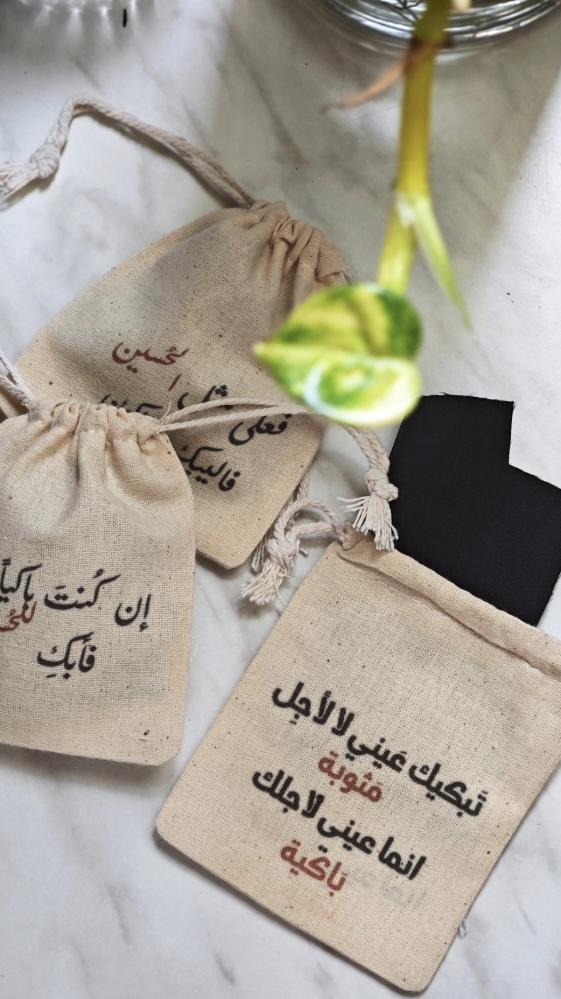 لحسين
فعلى مثل ا
إن كُنتَ باكياً
فأبكِ
تَبكيك عَيني لا لأجل
مَثوبة
انما عيني لاجلك
بَاكية